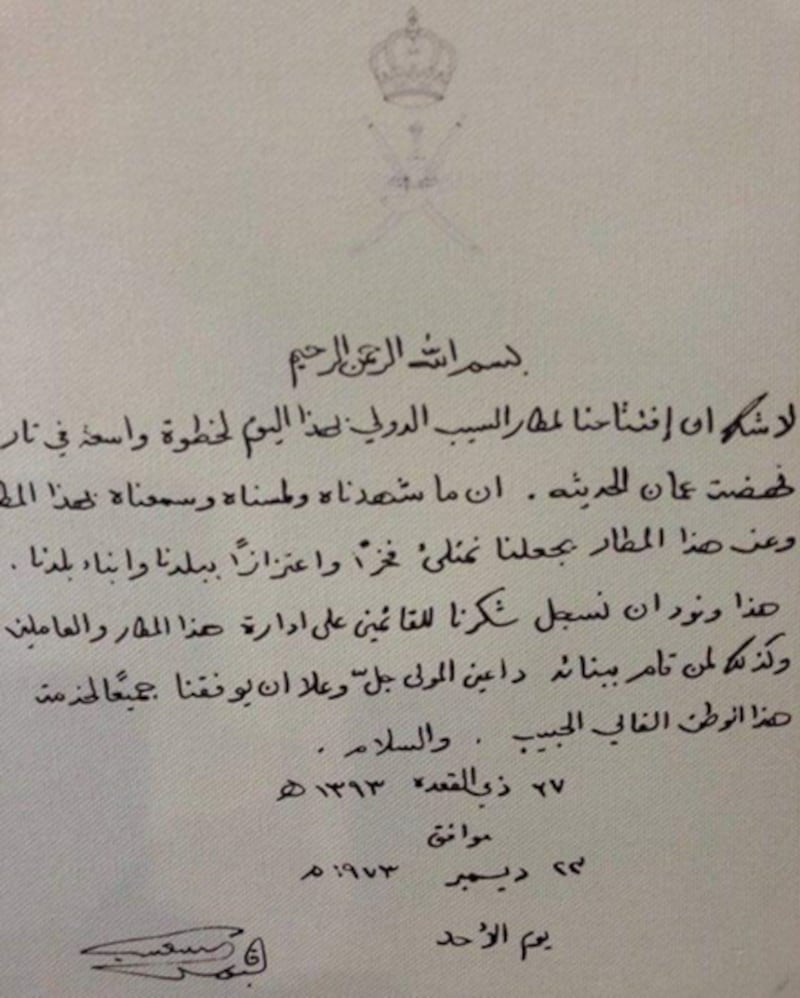 بسم الله الرحمن الرحيم
لا شك ان إفتتاحنا لمطار السيب الدولي بهذا اليوم لخطوة واسعة في تار
نهضت عمان الحديثه . ان ما شهدناه ولمسناه وسمعناه بهذا المط
وعن هذا المطار يجعلنا نمتلئ فخرًا واعتزازًا ببلدنا وابناء بلدنا .
هذا ونود ان نسجل شكرنا للقائمين على ادارة هذا المطار والعاملين
وكذلك لمن قام ببنائه داعين المولى جلّ وعلا ان يوفقنا جميعًا لخدمة
هذا الوطن الغالي الحبيب . والسلام .
٢٧ ذي القعده ١٣٩٣ هـ
موافق
٢٣ ديسمبر ١٩٧٣ م
يوم الأحد
قابوس بن سعيد